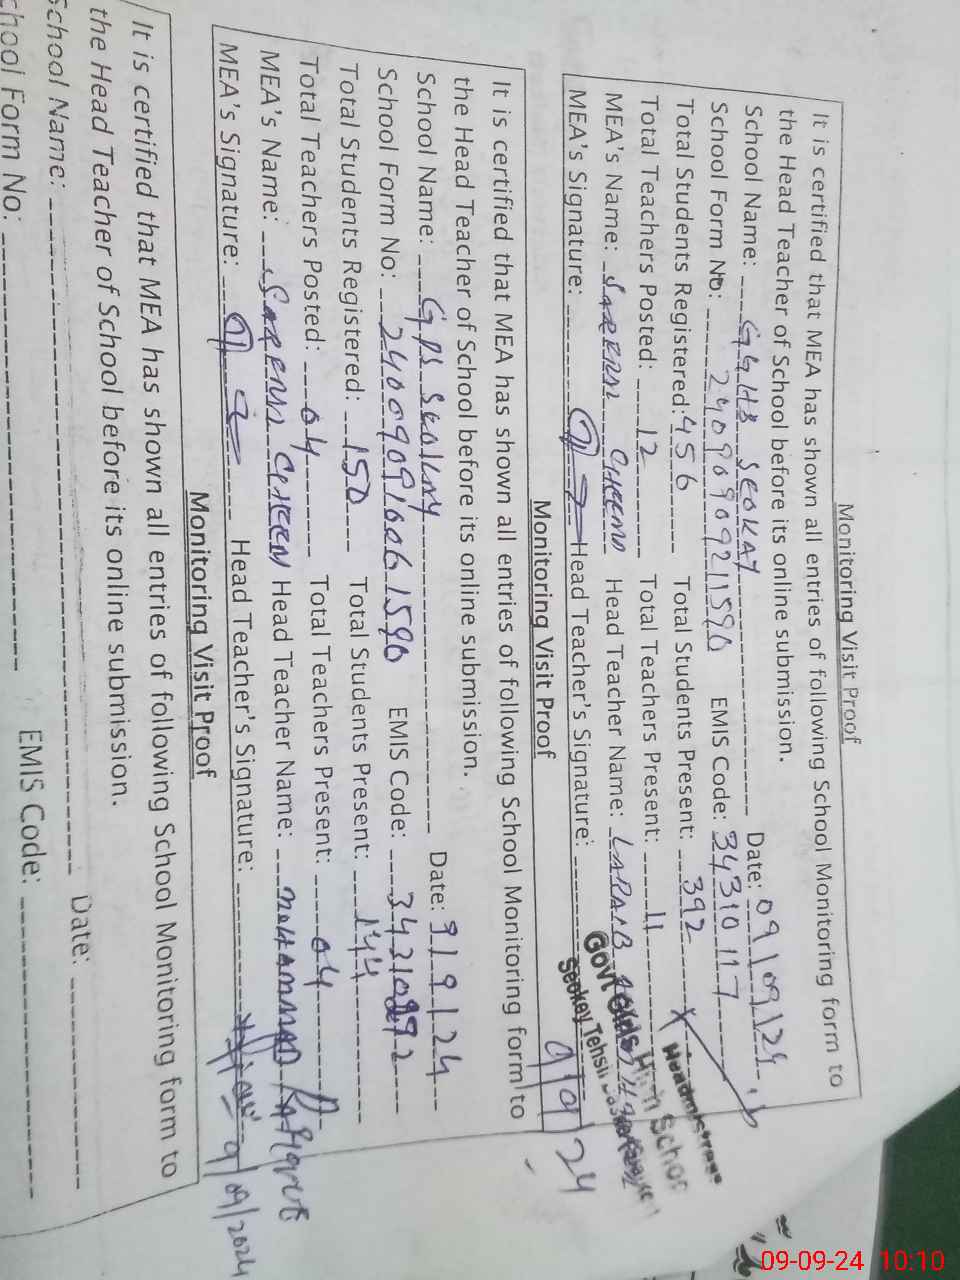 Monitoring Visit Proof
It is certified that MEA has shown all entries of following School Monitoring form to
the Head Teacher of School before its online submission.
School Name: GGHS SEOKAY Date: 09/09/24
School Form No: 24090909211590 EMIS Code: 34310117
Total Students Registered: 456 Total Students Present: 392
Total Teachers Posted: 12 Total Teachers Present: 11
MEA's Name: Head Teacher Name:
MEA's Signature: Head Teacher's Signature:
Headmistress
Govt Girls High School
Seokey Tehsil
9/9/24
Monitoring Visit Proof
It is certified that MEA has shown all entries of following School Monitoring form to
the Head Teacher of School before its online submission.
School Name: GPS Date: 9/9/24
School Form No: EMIS Code:
Total Students Registered: 150 Total Students Present: 144
Total Teachers Posted: 04 Total Teachers Present: 04
MEA's Name: Head Teacher Name: MUHAMMAD
MEA's Signature: Head Teacher's Signature: 9/09/2024
Monitoring Visit Proof
It is certified that MEA has shown all entries of following School Monitoring form to
the Head Teacher of School before its online submission.
School Name: Date:
School Form No: EMIS Code:
09-09-24 10:10